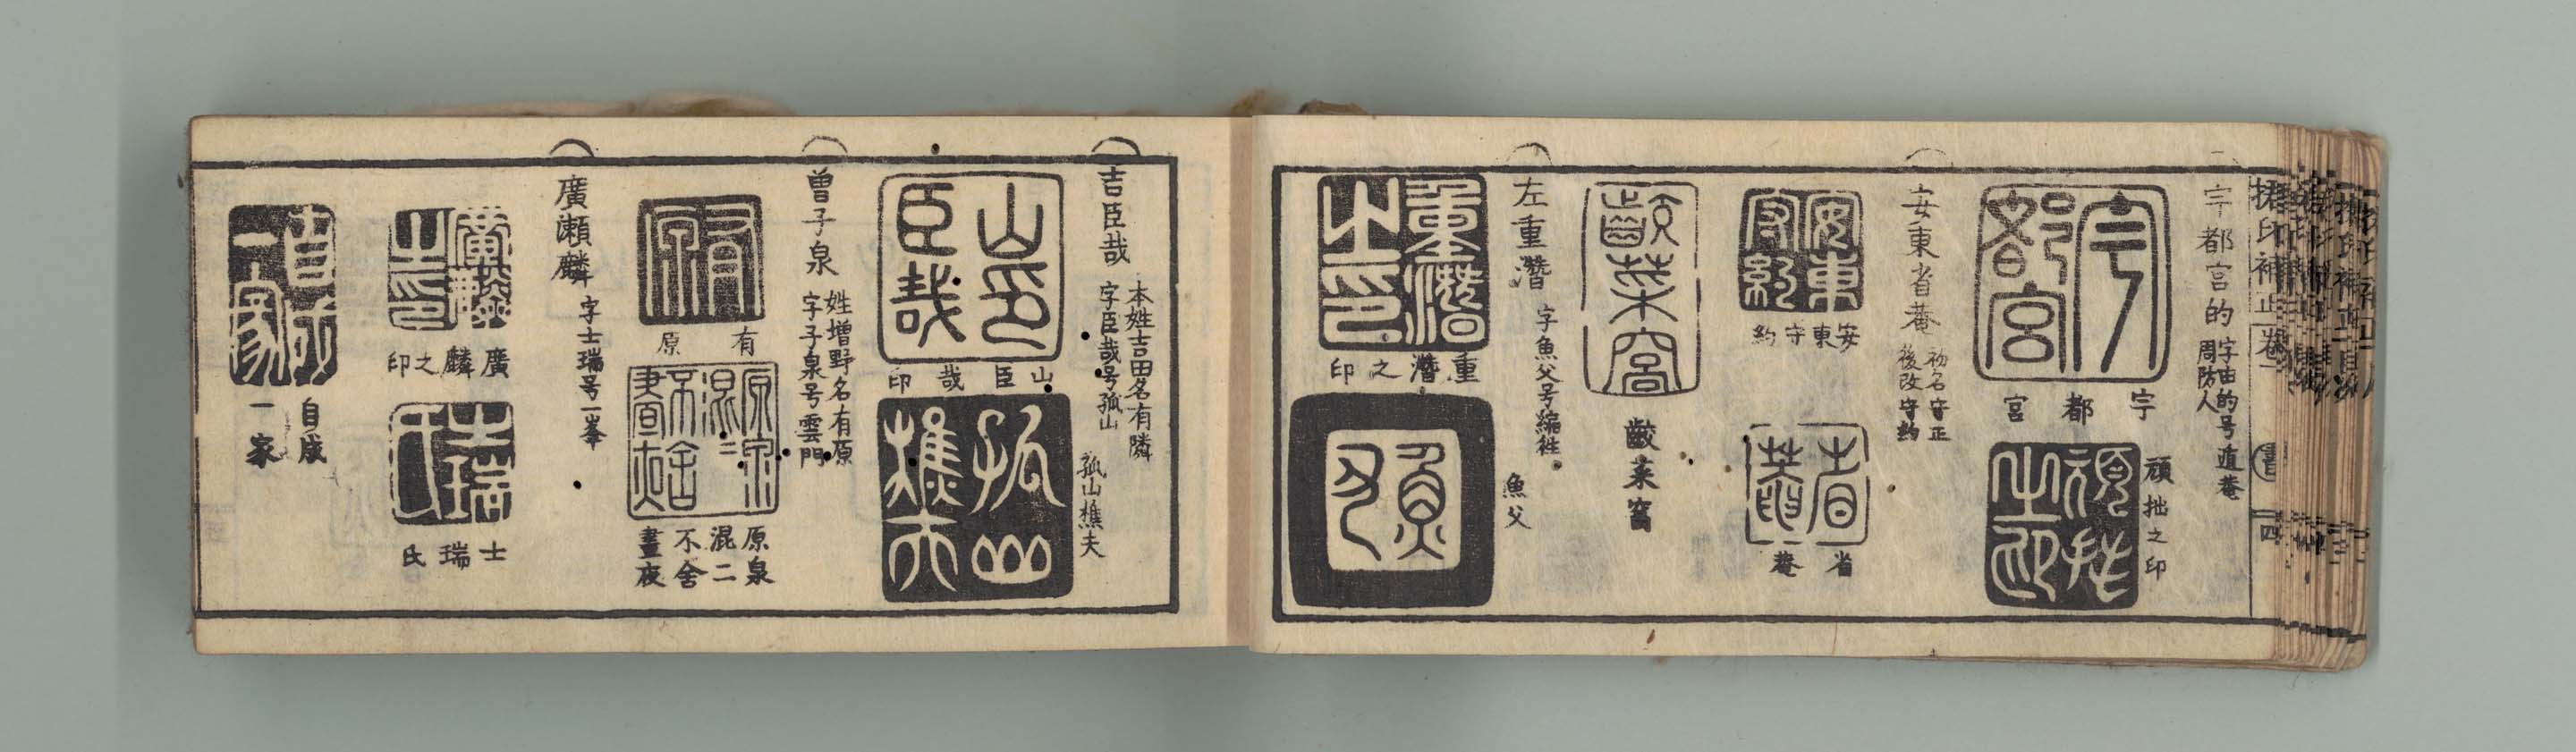 捃印補正 卷一 書 四
宇都宮的
字由的号遯菴
周防人
宇都宮
頑拙之印
安東省菴
初名守正
後改守約
安東守約
省菴
齩菜窩
左重潛
字魚父号
重潛之印
魚父
吉臣哉
本姓吉田名有隣
字臣哉号孤山
山臣哉印
孤山樵夫
曽子泉
姓増野名有原
字子泉号雲門
有原
原泉
混二
不舍
晝夜
廣瀬麟
字士瑞号一峯
廣麟之印
士瑞氏
自成
一家